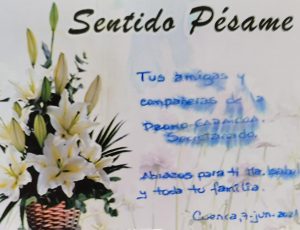 Sentido Pésame
Tus amigas y
compañeras de la
Secretariado.
Abrazos para ti
y toda tu familia.
Cuenca, 7-jun-2021